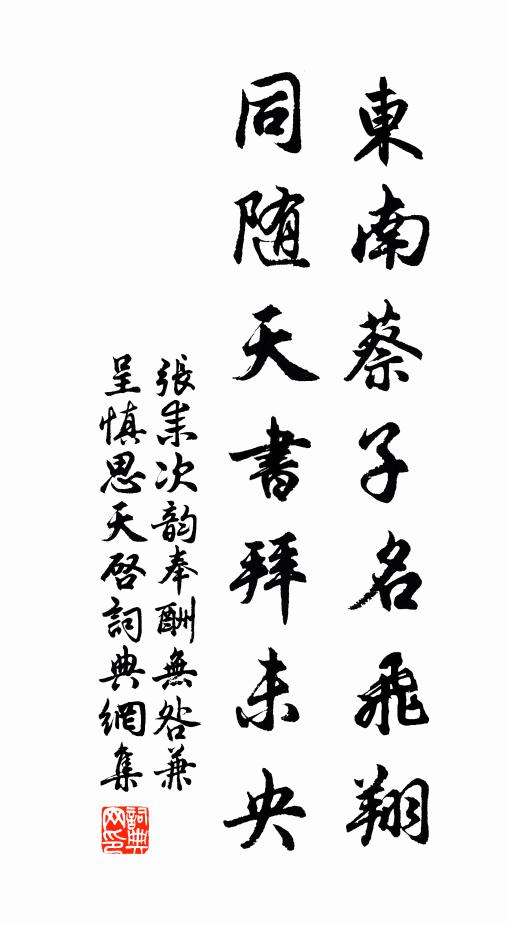 東南蔡子名飛翔
同随天書拜未央
張耒次韵奉酬無咎兼
呈慎思天啓詞典網集
詞典网印